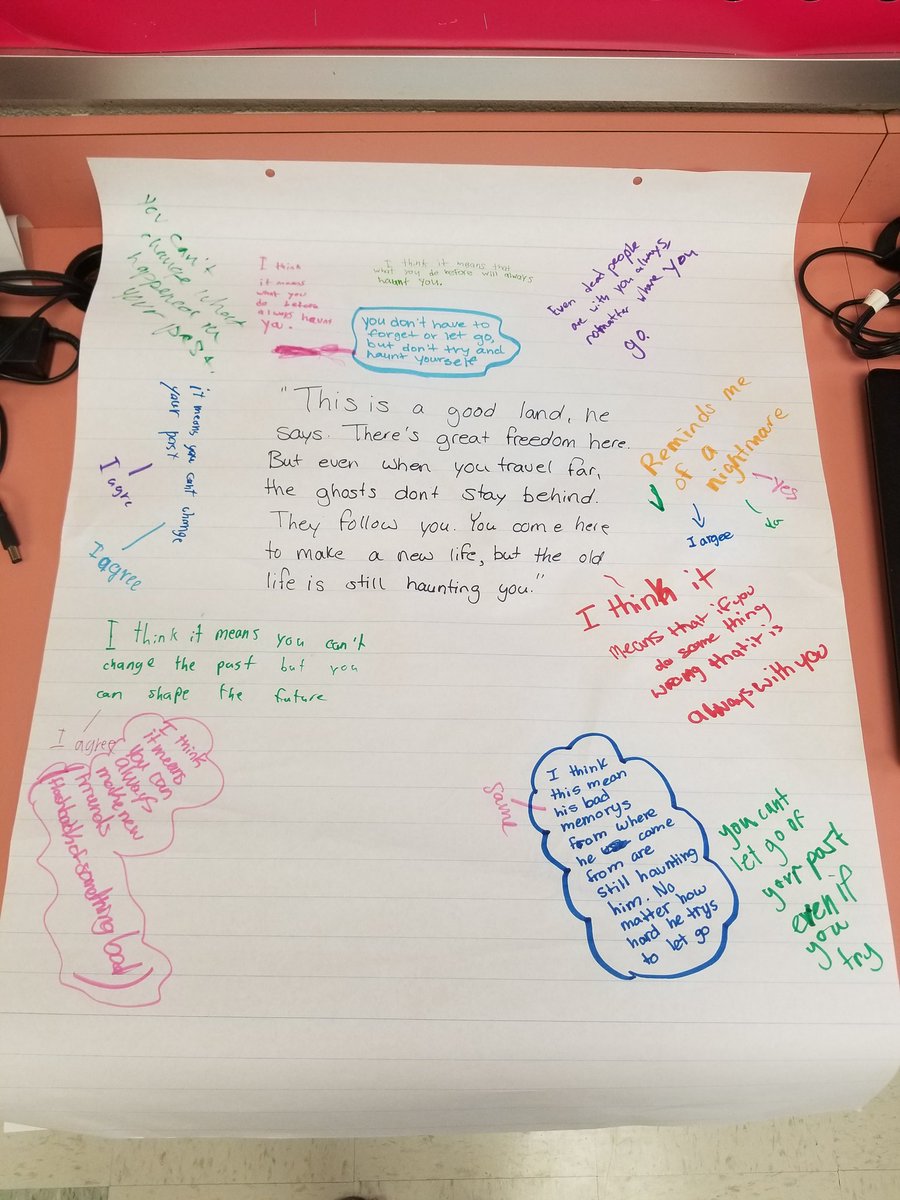 You can't
change what
happened in
your past.
I think
it means
what you
do before
always haunt
you.
I think it means that
what you do before will always
haunt you.
Even dead people
are with you always
nomatter where you
go.
you don't have to
forget or let go,
but don't try and
haunt yourself
"This is a good land, he
says. There's great freedom here.
But even when you travel far,
the ghosts dont stay behind.
They follow you. You come here
to make a new life, but the old
life is still haunting you."
it means you cant change
your past
I agre
I agree
Reminds me
of a
nightmare
yes
I argee
I think it
means that if you
do some thing
wrong that it is
always with you
I think it means you can't
change the past but you
can shape the future
I agree
I think
it means
you can
always
make new
flashback of somthing bad
same
I think
this mean
his bad
memorys
from where
he came
from are
still haunting
him. No
matter how
hard he trys
to let go
you cant
let go of
your past
even if
you
try